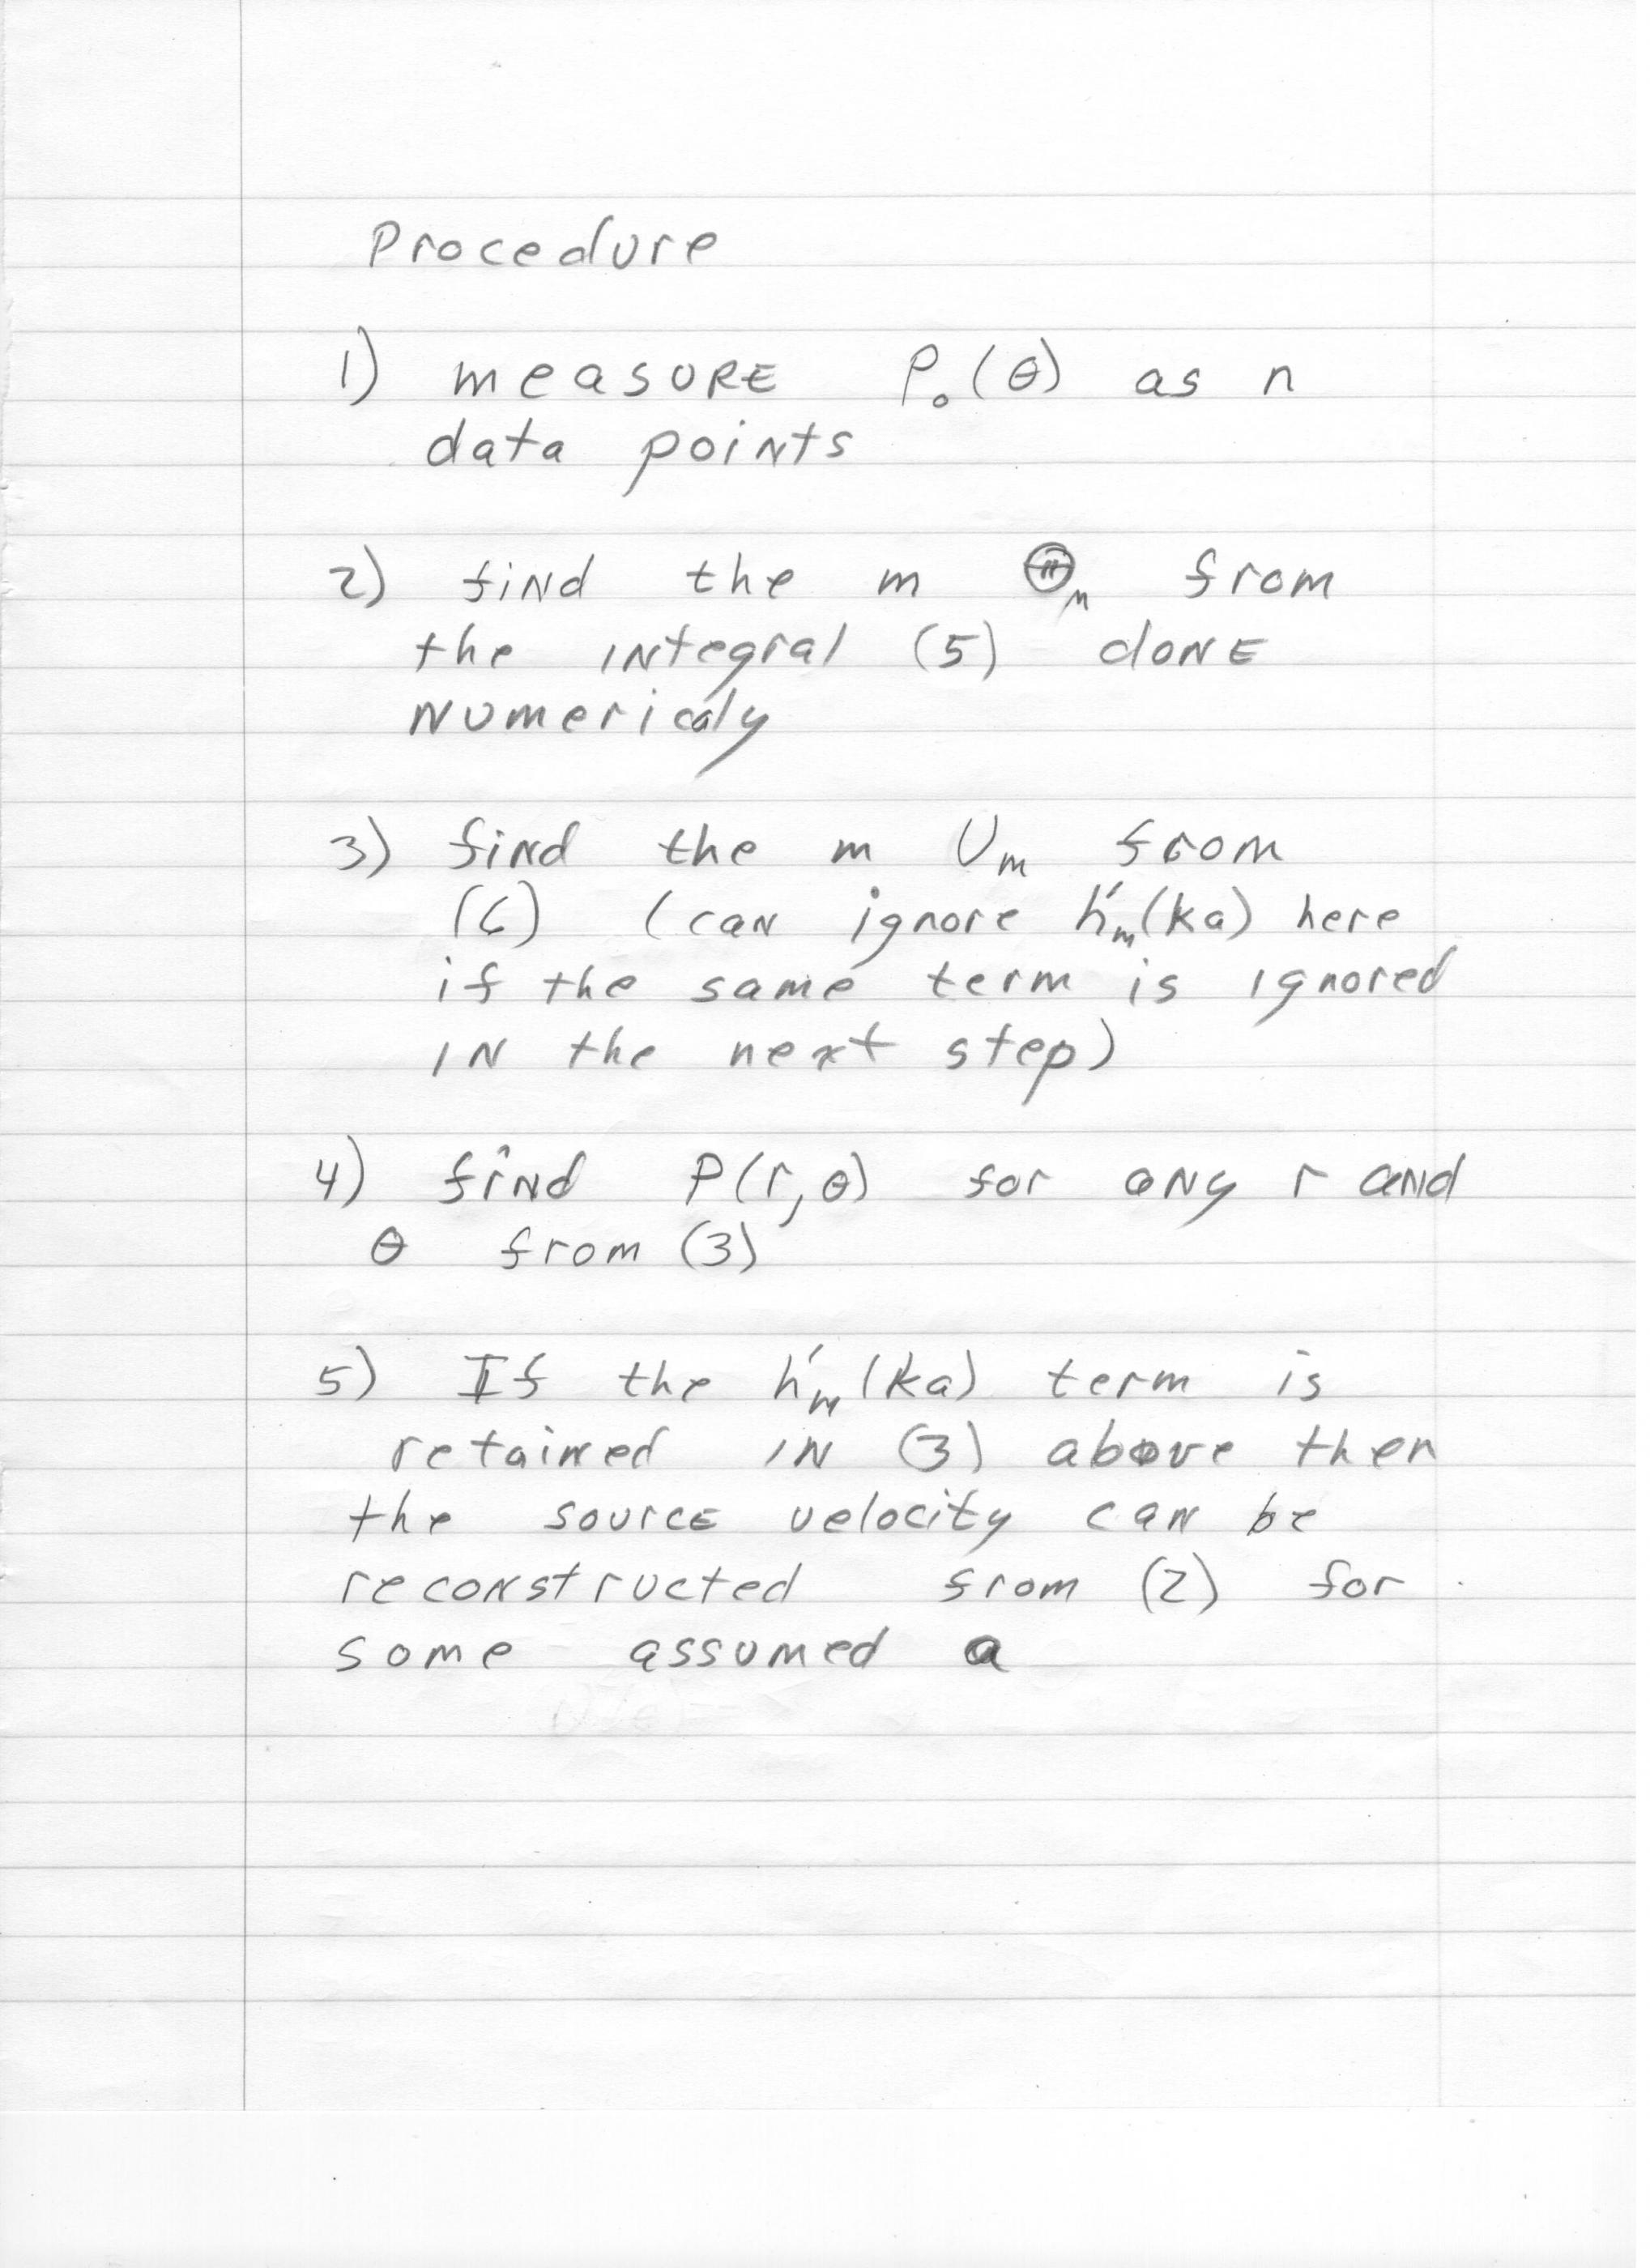 Procedure
1) measure P₀(θ) as n
data points
2) find the m Ⓗₘ from
the integral (5) done
numericaly
3) find the m Uₘ from
(6) (can ignore h'ₘ(ka) here
if the same term is ignored
in the next step)
4) find P(r,θ) for any r and
θ from (3)
5) If the h'ₘ(ka) term is
retained in (3) above then
the source velocity can be
reconstructed from (2) for
some assumed a